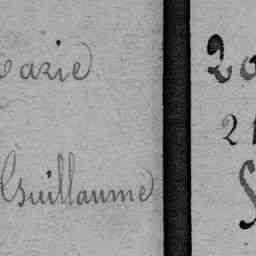 Marie
Guillaume
20
21